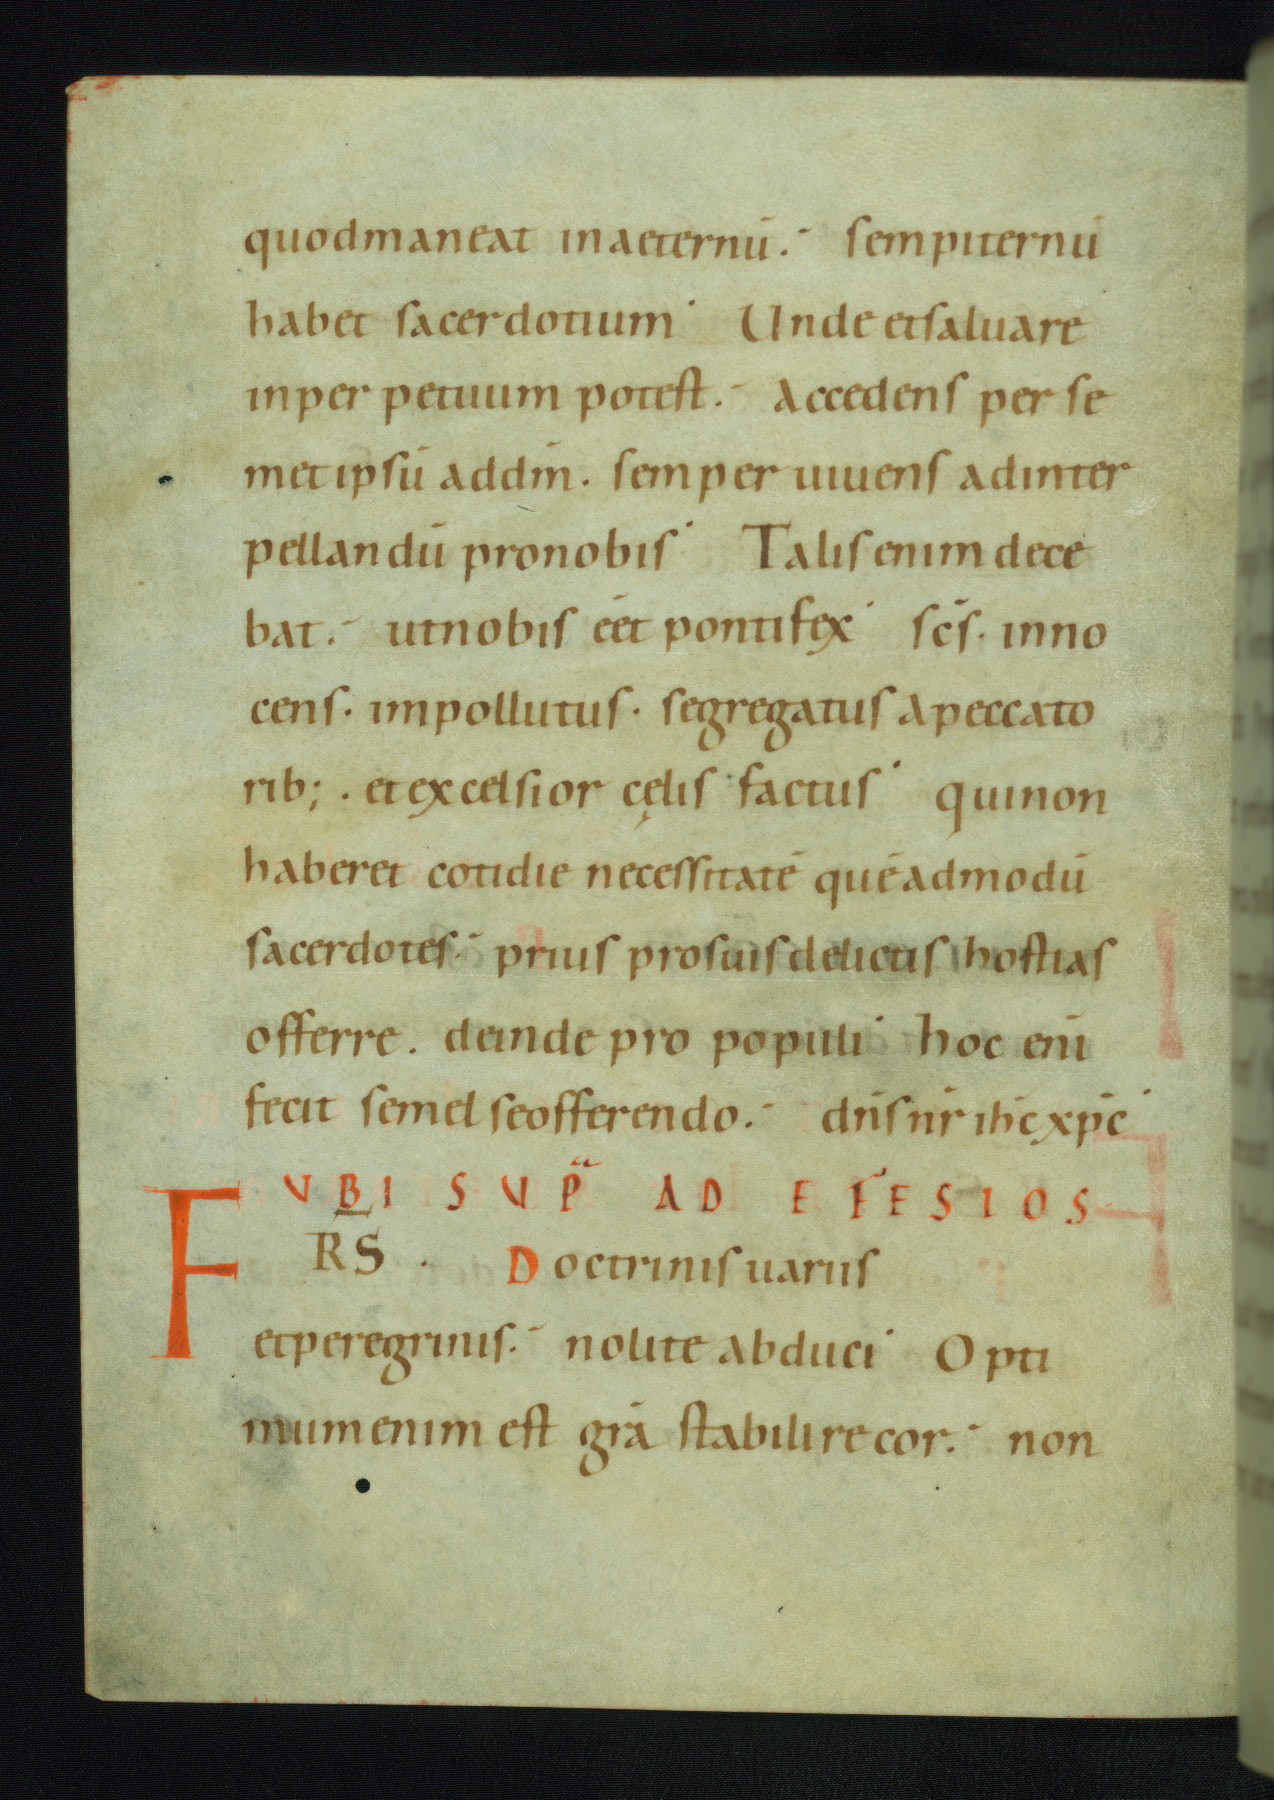 quodmaneat inaeternū. sempiternū
habet sacerdotium Unde etsaluare
inper petuum potest. Accedens per se
met ipsū addm̄. semper uiuens adinter
pellandū pronobis Talis enim dece
bat. utnobis eēt pontifex sc̄s. inno
cens. impollutus. segregatus apeccato
rib; . et excelsior cęlis factus quinon
haberet cotidie necessitatē quēadmodū
sacerdotes. prius prosuis delictis hostias
offerre. deinde pro populi hoc enī
fecit semel seofferendo. dn̄s nr̄ ih̄c xp̄c
VBI SVP̄ AD EFESIOS
FRS . Doctrinis uariis
etperegrinis. nolite abduci Opti
mum enim est gr̄a stabilire cor. non